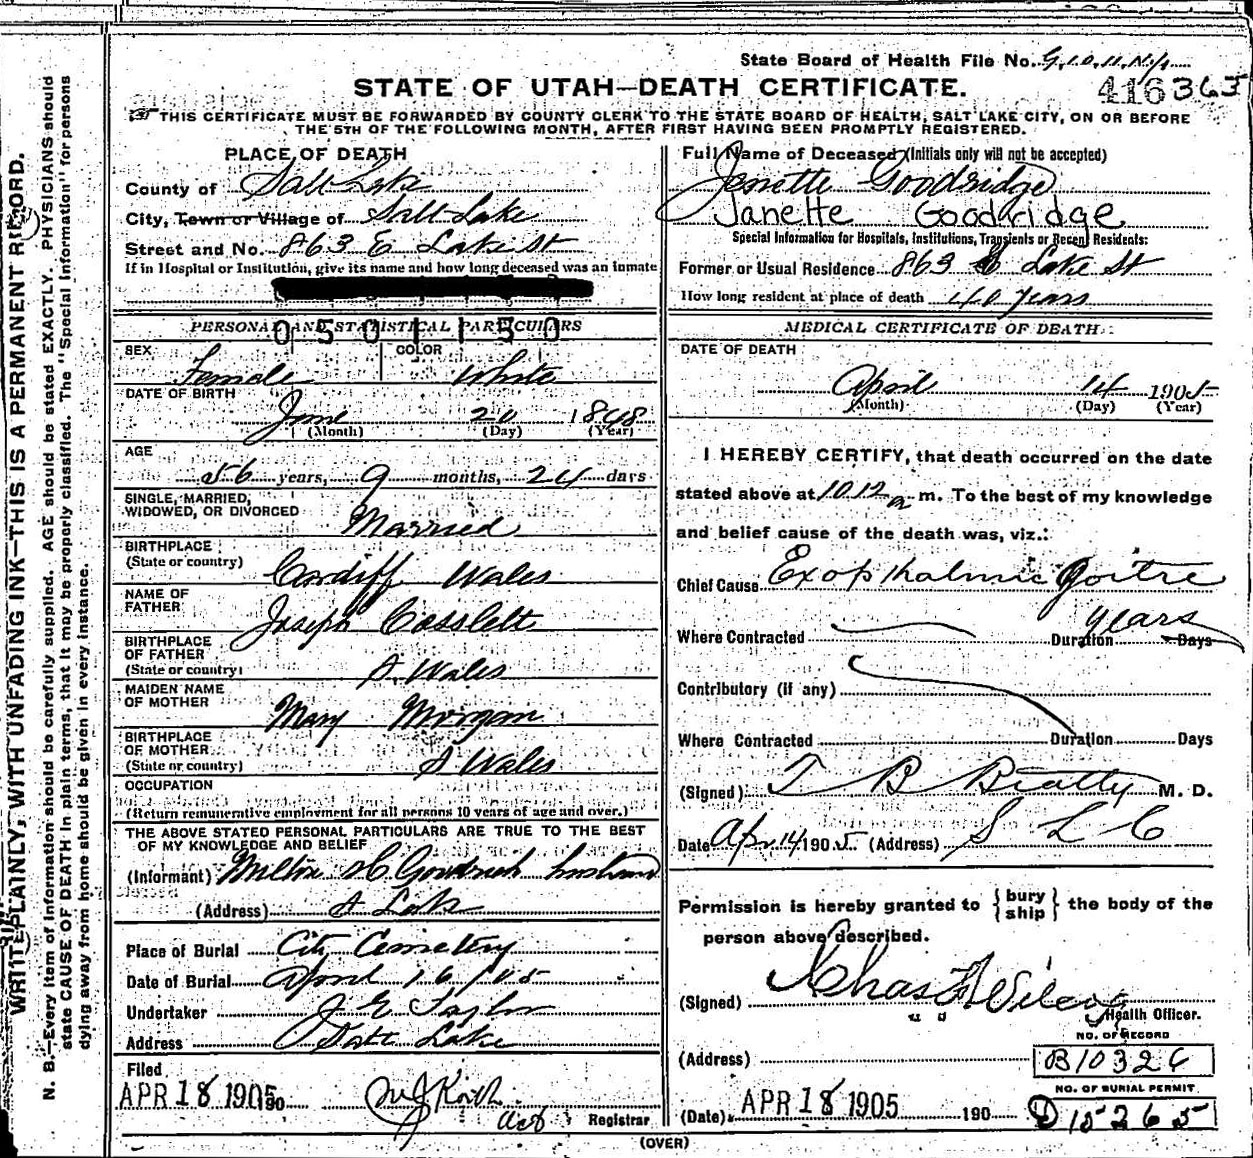 State Board of Health File No. G.10.11.N/1
STATE OF UTAH—DEATH CERTIFICATE.
416363
THIS CERTIFICATE MUST BE FORWARDED BY COUNTY CLERK TO THE STATE BOARD OF HEALTH, SALT LAKE CITY, ON OR BEFORE
THE 5TH OF THE FOLLOWING MONTH, AFTER FIRST HAVING BEEN PROMPTLY REGISTERED.
WRITE PLAINLY, WITH UNFADING INK—THIS IS A PERMANENT RECORD.
N. B.—Every item of information should be carefully supplied. AGE should be stated EXACTLY. PHYSICIANS should
state CAUSE OF DEATH in plain terms, that it may be properly classified. The "Special Information" for persons
dying away from home should be given in every instance.
PLACE OF DEATH
County of Salt Lake
City, Town or Village of Salt Lake
Street and No. 863 E Lake St
If in Hospital or Institution, give its name and how long deceased was an inmate
PERSONAL AND STATISTICAL PARTICULARS
0501150
SEX Female COLOR White
DATE OF BIRTH
June 20 1848
(Month) (Day) (Year)
AGE
56 years, 9 months, 24 days
SINGLE, MARRIED,
WIDOWED, OR DIVORCED Married
BIRTHPLACE
(State or country) Cardiff Wales
NAME OF
FATHER Joseph Cosslett
BIRTHPLACE
OF FATHER
(State or country) S. Wales
MAIDEN NAME
OF MOTHER Mary Morgan
BIRTHPLACE
OF MOTHER
(State or country) S Wales
OCCUPATION
(Return remunerative employment for all persons 10 years of age and over.)
THE ABOVE STATED PERSONAL PARTICULARS ARE TRUE TO THE BEST
OF MY KNOWLEDGE AND BELIEF
(Informant) Milton H Goodrich husband
(Address) S Lake
Place of Burial City Cemetery
Date of Burial April 16/05
Undertaker J E Taylor
Address Salt Lake
Filed
APR 18 1905 190
M J Keith
act Registrar
Full Name of Deceased (Initials only will not be accepted)
Jenette Goodridge
Janette Goodridge
Special Information for Hospitals, Institutions, Transients or Recent Residents:
Former or Usual Residence 863 E Lake St
How long resident at place of death 40 years
MEDICAL CERTIFICATE OF DEATH
DATE OF DEATH
April 14 1905
(Month) (Day) (Year)
I HEREBY CERTIFY, that death occurred on the date
stated above at 10 12 a m. To the best of my knowledge
and belief cause of the death was, viz.:
Chief Cause Exopthalmic Goitre
years
Where Contracted Duration Days
Contributory (if any)
Where Contracted Duration Days
(Signed) T B Beatty M. D.
Date Apr 14 1905 (Address) S L C
Permission is hereby granted to {bury ship} the body of the
person above described.
(Signed) Chas F Wilcox
Health Officer.
NO. OF RECORD
(Address) B10326
NO. OF BURIAL PERMIT
(Date) APR 18 1905 190 D 15265
(OVER)